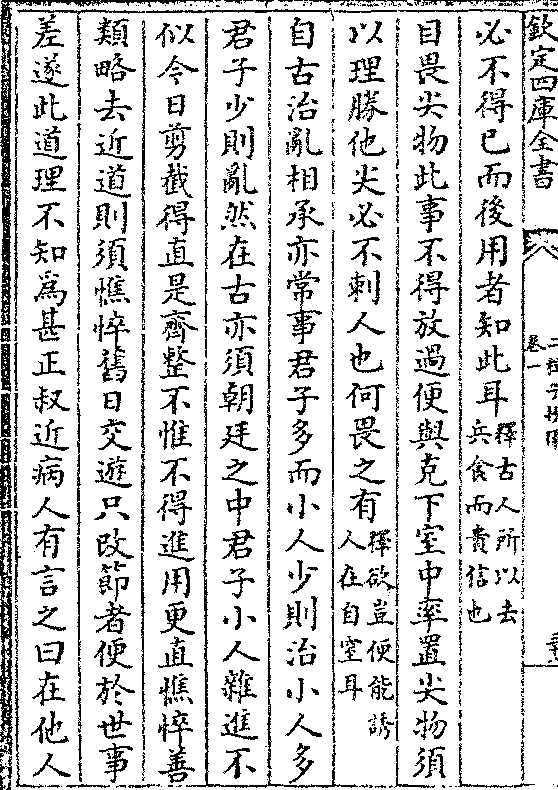 欽定四庫全書
卷一
必不得已而後用者知此耳釋古人所以去
兵食而貴信也
目畏尖物此事不得放過便與克下室中率置尖物須
以理勝他尖必不刺人也何畏之有釋欲豈便能誘
人在自窒耳
自古治亂相承亦常事君子多而小人少則治小人多
君子少則亂然在古亦須朝廷之中君子小人雜進不
似今日剪截得直是齊整不惟不得進用更直憔悴善
類略去近道則須憔悴舊日交遊只改節者便於世事
差遂此道理不知爲甚正叔近病人有言之曰在他人